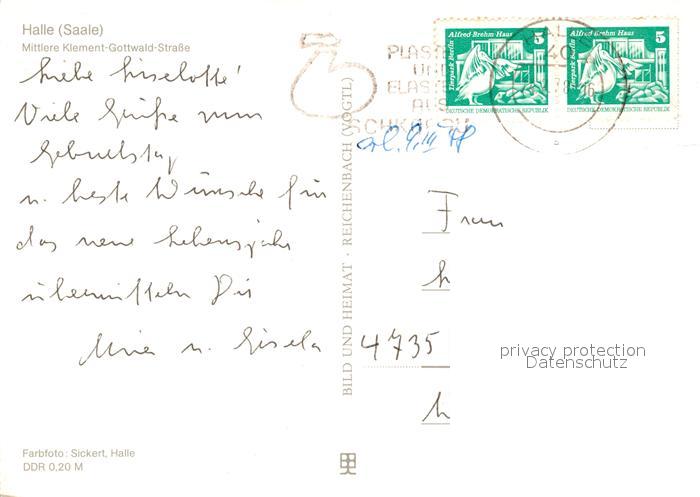 Halle (Saale)
Mittlere Klement-Gottwald-Straße
Liebe Liselotte!
Viele Grüße zum
Geburtstag
u. beste Wünsche für
das neue Lebensjahr
übermitteln Dir
u. Gisela
Farbfoto: Sickert, Halle
DDR 0,20 M
BILD UND HEIMAT · REICHENBACH (VOGTL)
PLASTE
UND
ELASTE
AUS
SCHKOPAU
Alfred Brehm Haus 5
Tierpark Berlin
DEUTSCHE DEMOKRATISCHE REPUBLIK
Alfred Brehm Haus 5
Tierpark Berlin
DEUTSCHE DEMOKRATISCHE REPUBLIK
Frau
4735
privacy protection
Datenschutz